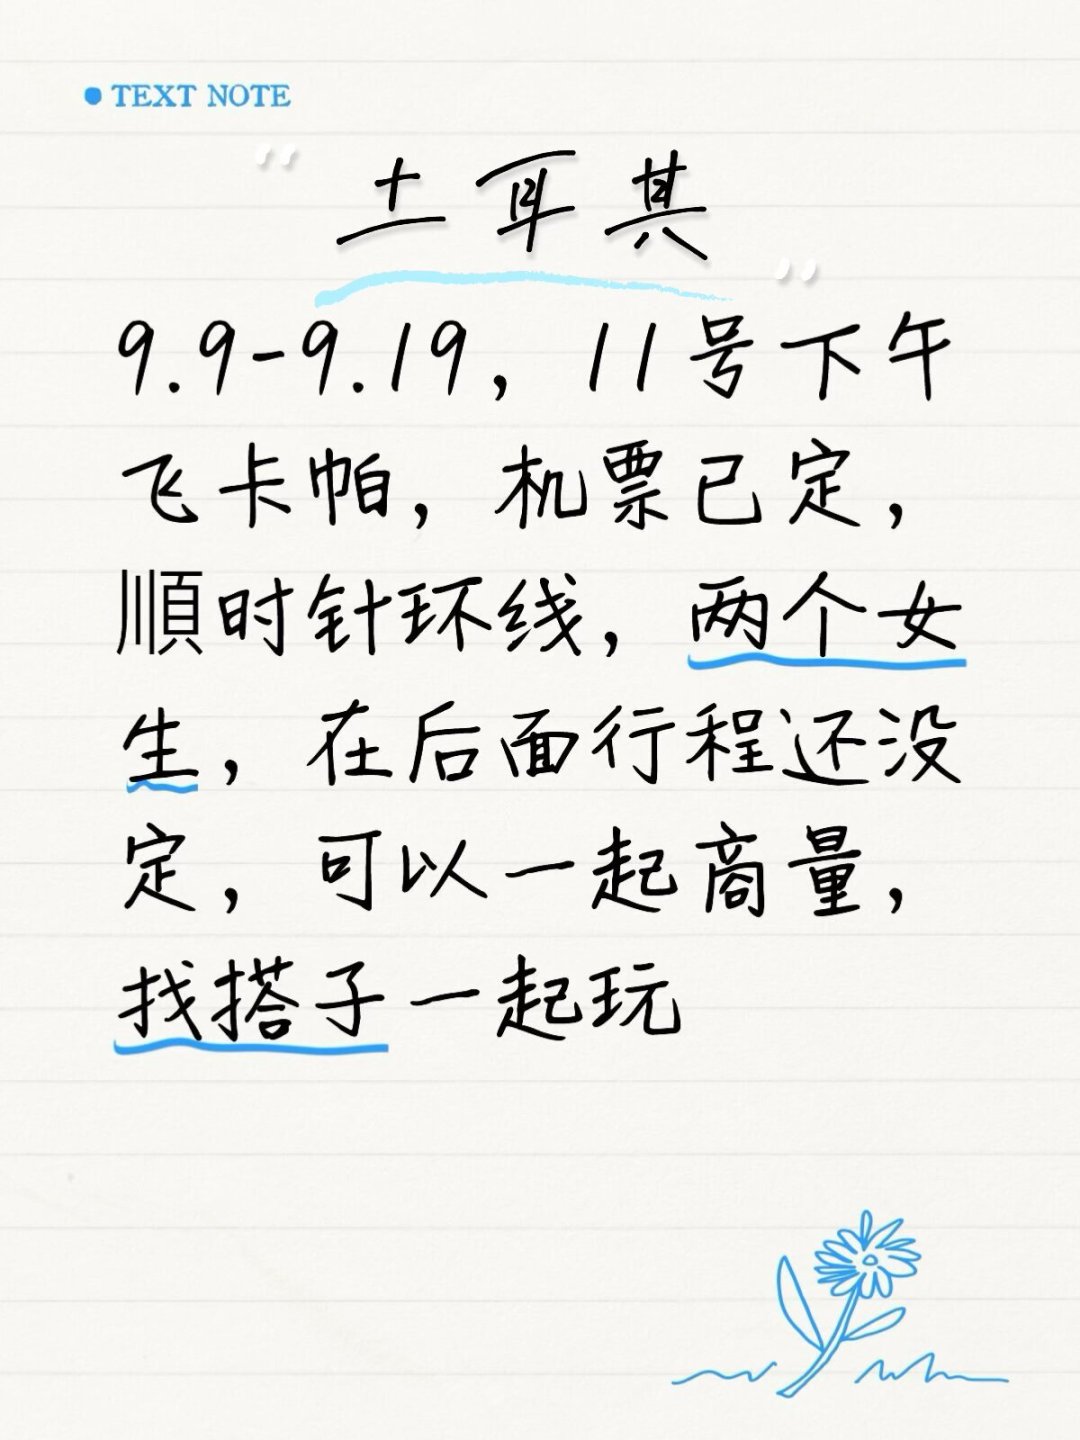 TEXT NOTE
“土耳其”
9.9-9.19，11号下午
飞卡帕，机票已定，
順时针环线，两个女
生，在后面行程还没
定，可以一起商量，
找搭子一起玩